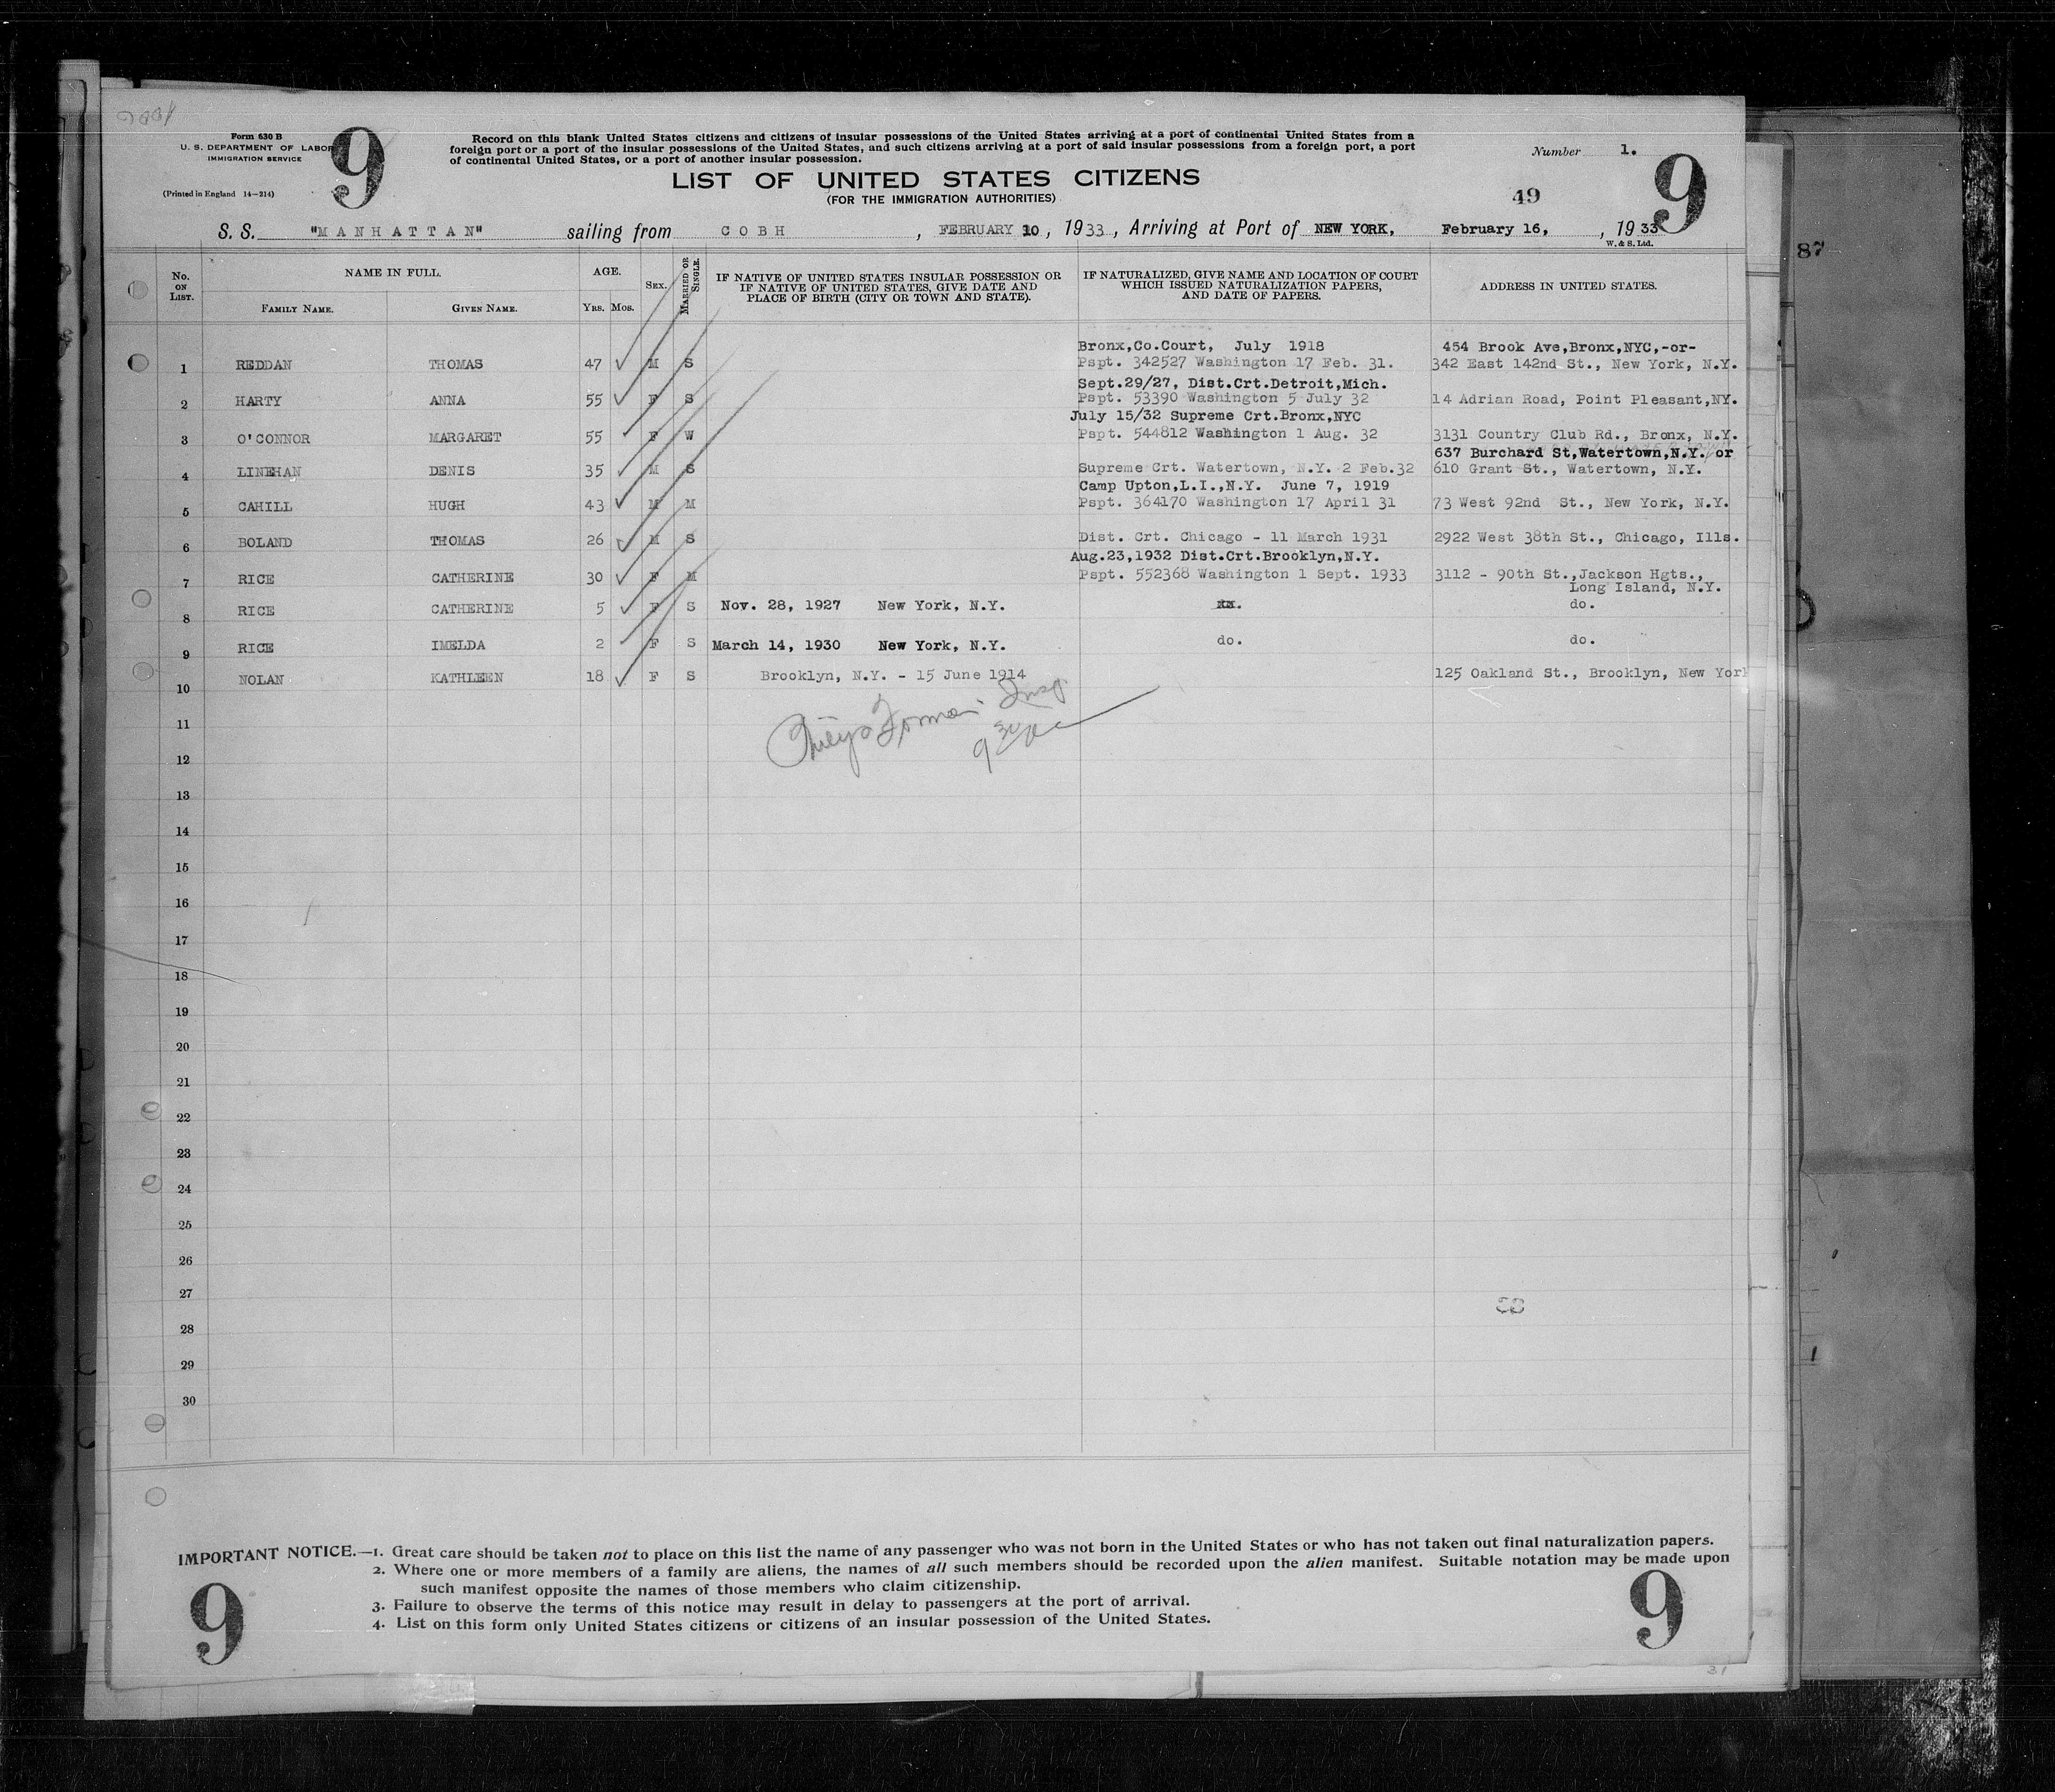 Form 630 B
U. S. DEPARTMENT OF LABOR
IMMIGRATION SERVICE
(Printed in England 14—214)
9
Record on this blank United States citizens and citizens of insular possessions of the United States arriving at a port of continental United States from a
foreign port or a port of the insular possessions of the United States, and such citizens arriving at a port of said insular possessions from a foreign port, a port
of continental United States, or a port of another insular possession.
LIST OF UNITED STATES CITIZENS
(FOR THE IMMIGRATION AUTHORITIES)
Number 1.
49
9
S. S. "MANHATTAN" sailing from COBH, FEBRUARY 10, 1933, Arriving at Port of NEW YORK, February 16, , 1933
W. & S. Ltd.
87
No. ON LIST.
NAME IN FULL.
FAMILY NAME. GIVEN NAME.
AGE.
YRS. MOS.
SEX.
MARRIED OR SINGLE.
IF NATIVE OF UNITED STATES INSULAR POSSESSION OR
IF NATIVE OF UNITED STATES, GIVE DATE AND
PLACE OF BIRTH (CITY OR TOWN AND STATE).
IF NATURALIZED, GIVE NAME AND LOCATION OF COURT
WHICH ISSUED NATURALIZATION PAPERS,
AND DATE OF PAPERS.
ADDRESS IN UNITED STATES.
Bronx,Co.Court, July 1918 454 Brook Ave,Bronx,NYC,-or-
1 REDDAN THOMAS 47 M S Pspt. 342527 Washington 17 Feb. 31. 342 East 142nd St., New York, N.Y.
Sept.29/27, Dist.Crt.Detroit,Mich.
2 HARTY ANNA 55 F S Pspt. 53390 Washington 5 July 32 14 Adrian Road, Point Pleasant,NY.
July 15/32 Supreme Crt.Bronx,NYC
3 O'CONNOR MARGARET 55 F W Pspt. 544812 Washington 1 Aug. 32 3131 Country Club Rd., Bronx, N.Y.
637 Burchard St,Watertown,N.Y. or
4 LINEHAN DENIS 35 M S Supreme Crt. Watertown, N.Y. 2 Feb.32 610 Grant St., Watertown, N.Y.
Camp Upton,L.I.,N.Y. June 7, 1919
5 CAHILL HUGH 43 M M Pspt. 364170 Washington 17 April 31 73 West 92nd St., New York, N.Y.
6 BOLAND THOMAS 26 M S Dist. Crt. Chicago - 11 March 1931 2922 West 38th St., Chicago, Ills.
Aug.23,1932 Dist.Crt.Brooklyn,N.Y.
7 RICE CATHERINE 30 F M Pspt. 552368 Washington 1 Sept. 1933 3112 - 90th St.,Jackson Hgts.,
Long Island, N.Y.
8 RICE CATHERINE 5 F S Nov. 28, 1927 New York, N.Y. do.
9 RICE IMELDA 2 F S March 14, 1930 New York, N.Y. do. do.
10 NOLAN KATHLEEN 18 F S Brooklyn, N.Y. - 15 June 1914 125 Oakland St., Brooklyn, New York
Insp
11
12
13
14
15
16
17
18
19
20
21
22
23
24
25
26
27
28
29
30
IMPORTANT NOTICE.—1. Great care should be taken not to place on this list the name of any passenger who was not born in the United States or who has not taken out final naturalization papers.
2. Where one or more members of a family are aliens, the names of all such members should be recorded upon the alien manifest. Suitable notation may be made upon
such manifest opposite the names of those members who claim citizenship.
3. Failure to observe the terms of this notice may result in delay to passengers at the port of arrival.
4. List on this form only United States citizens or citizens of an insular possession of the United States.
9
9